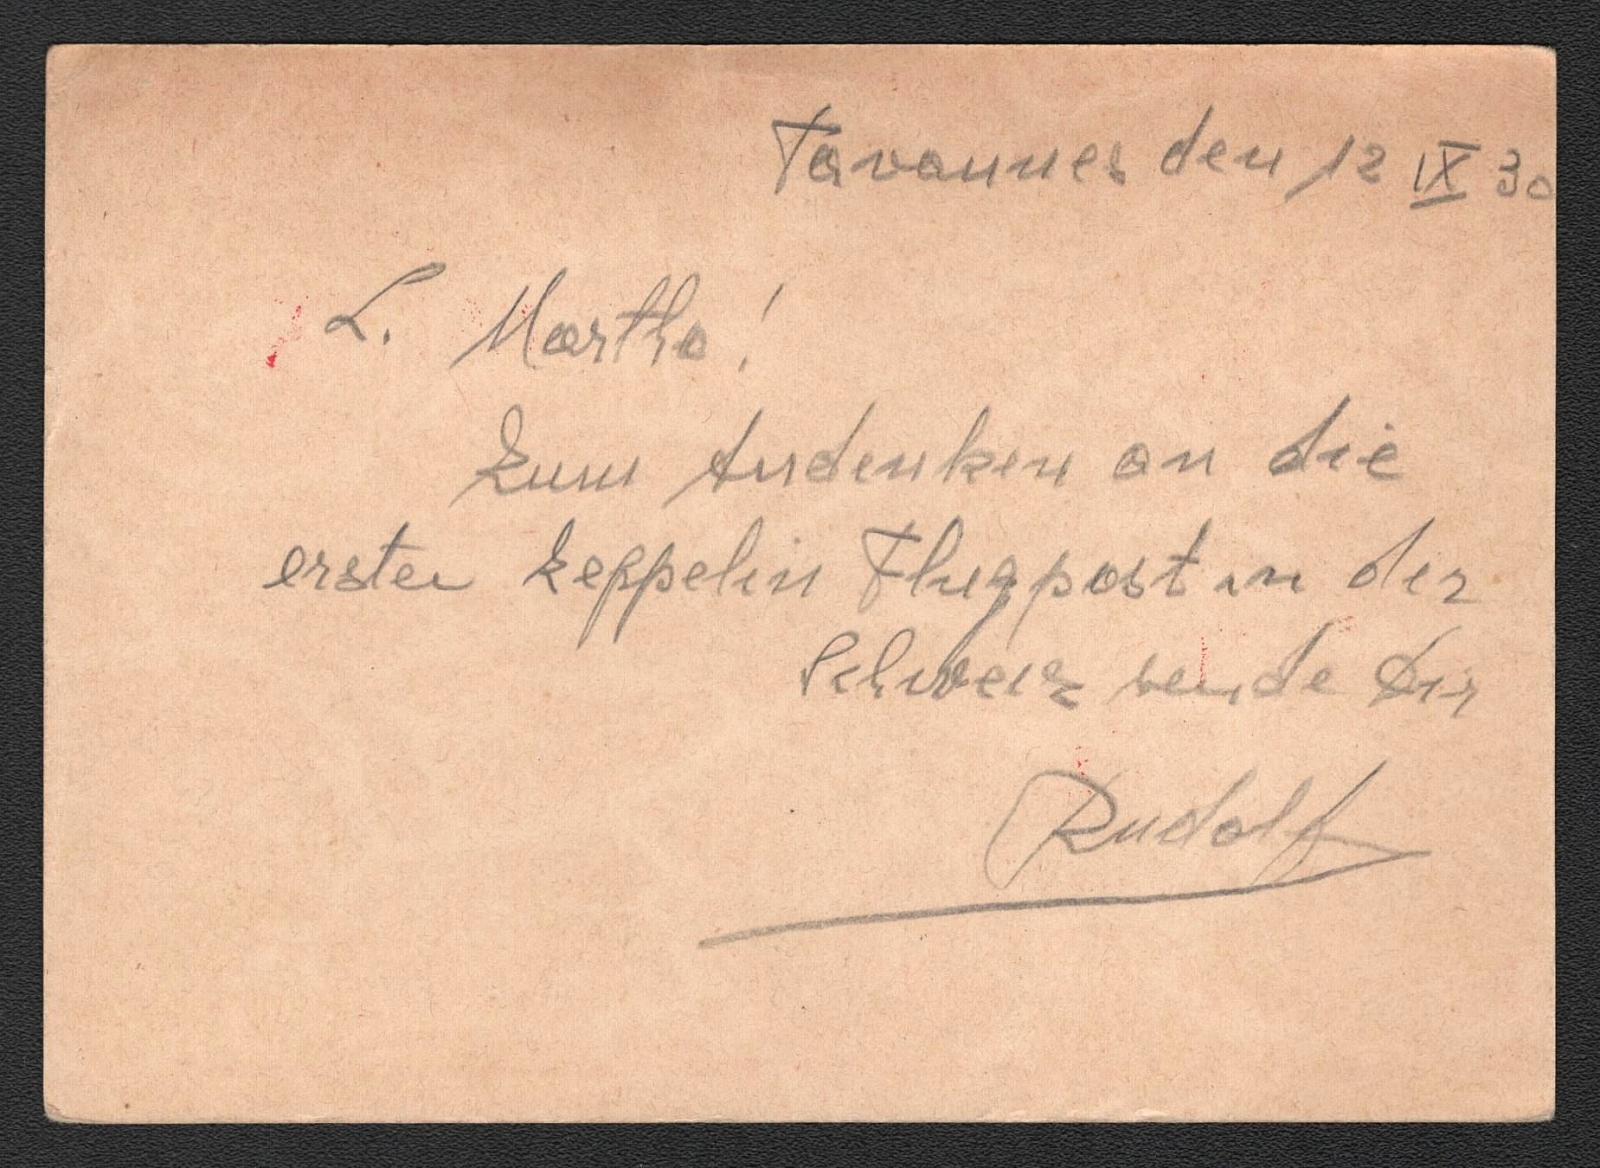 Tavannes den 12 IX 30
L. Martha!
Zum Andenken an die
erste Zeppelin Flugpost in der
Schweiz sende Dir
Rudolf